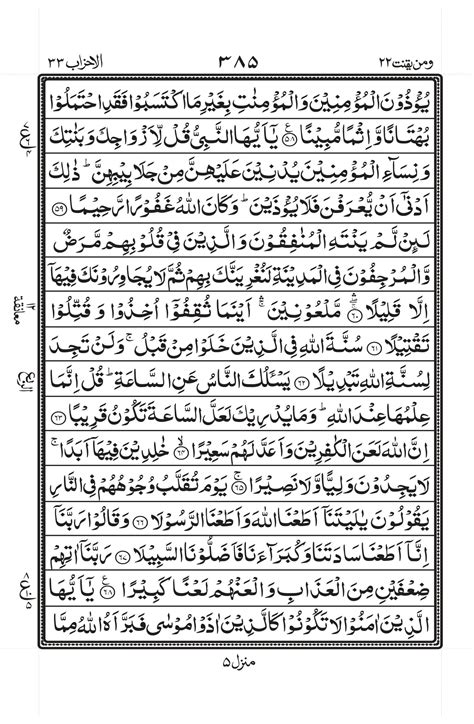 ومن یقنت ۲۲ ۳۸۵ الاحزاب ۳۳
یُؤْذُوْنَ الْمُؤْمِنِیْنَ وَالْمُؤْمِنٰتِ بِغَیْرِ مَا اكْتَسَبُوْا فَقَدِ احْتَمَلُوْا
بُهْتَانًا وَّ اِثْمًا مُّبِیْنًا ۝۵۸ یٰۤاَیُّهَا النَّبِیُّ قُلْ لِّاَزْوَاجِكَ وَ بَنٰتِكَ
وَ نِسَآءِ الْمُؤْمِنِیْنَ یُدْنِیْنَ عَلَیْهِنَّ مِنْ جَلَابِیْبِهِنَّ ؕ ذٰلِكَ
اَدْنٰۤی اَنْ یُّعْرَفْنَ فَلَا یُؤْذَیْنَ ؕ وَكَانَ اللّٰهُ غَفُوْرًا رَّحِیْمًا ۝۵۹
لَىِٕنْ لَّمْ یَنْتَهِ الْمُنٰفِقُوْنَ وَ الَّذِیْنَ فِیْ قُلُوْبِهِمْ مَّرَضٌ
وَّ الْمُرْجِفُوْنَ فِی الْمَدِیْنَةِ لَنُغْرِیَنَّكَ بِهِمْ ثُمَّ لَا یُجَاوِرُوْنَكَ فِیْهَاۤ
اِلَّا قَلِیْلًا ۝۶۰ مَّلْعُوْنِیْنَ ۛۚ اَیْنَمَا ثُقِفُوْۤا اُخِذُوْا وَ قُتِّلُوْا
تَقْتِیْلًا ۝۶۱ سُنَّةَ اللّٰهِ فِی الَّذِیْنَ خَلَوْا مِنْ قَبْلُ ۚ وَلَنْ تَجِدَ
لِسُنَّةِ اللّٰهِ تَبْدِیْلًا ۝۶۲ یَسْـَٔلُكَ النَّاسُ عَنِ السَّاعَةِ ؕ قُلْ اِنَّمَا
عِلْمُهَا عِنْدَ اللّٰهِ ؕ وَمَا یُدْرِیْكَ لَعَلَّ السَّاعَةَ تَكُوْنُ قَرِیْبًا ۝۶۳
اِنَّ اللّٰهَ لَعَنَ الْكٰفِرِیْنَ وَ اَعَدَّ لَهُمْ سَعِیْرًا ۝۶۴ خٰلِدِیْنَ فِیْهَاۤ اَبَدًا ۚ
لَا یَجِدُوْنَ وَلِیًّا وَّلَا نَصِیْرًا ۝۶۵ یَوْمَ تُقَلَّبُ وُجُوْهُهُمْ فِی النَّارِ
یَقُوْلُوْنَ یٰلَیْتَنَاۤ اَطَعْنَا اللّٰهَ وَ اَطَعْنَا الرَّسُوْلَا ۝۶۶ وَقَالُوْا رَبَّنَاۤ
اِنَّاۤ اَطَعْنَا سَادَتَنَا وَ كُبَرَآءَنَا فَاَضَلُّوْنَا السَّبِیْلَا ۝۶۷ رَبَّنَاۤ اٰتِهِمْ
ضِعْفَیْنِ مِنَ الْعَذَابِ وَ الْعَنْهُمْ لَعْنًا كَبِیْرًا ۝۶۸ یٰۤاَیُّهَا
الَّذِیْنَ اٰمَنُوْا لَا تَكُوْنُوْا كَالَّذِیْنَ اٰذَوْا مُوْسٰی فَبَرَّاَهُ اللّٰهُ مِمَّا
معانقة ۱۲
الربع
منزل ۵